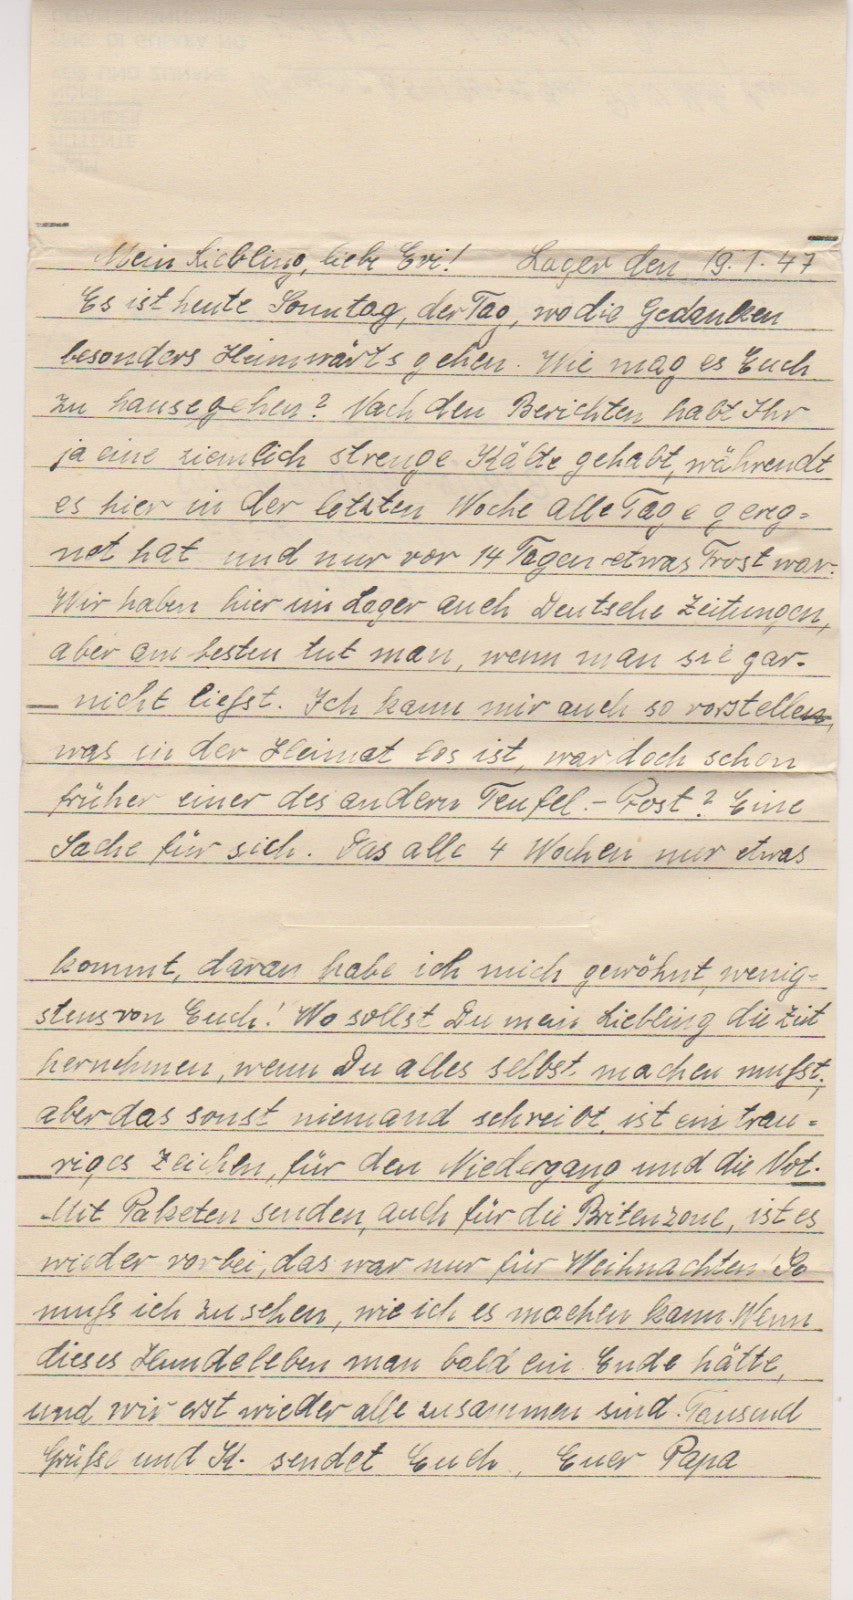 Mein Liebling, liebe Evi! Lager den 19.1.47
Es ist heute Sonntag, der Tag, wo die Gedanken
besonders Heimwärts gehen. Wie mag es Euch
zu hause gehen? Nach den Berichten habt Ihr
ja eine ziemlich strenge Kälte gehabt, währendt
es hier in der letzten Woche alle Tage gereg=
net hat und nur vor 14 Tagen etwas Frost war.
Wir haben hier im Lager auch Deutsche Zeitungen,
aber am besten tut man, wenn man sie gar-
nicht ließt. Ich kann mir auch so vorstellen,
was in der Heimat los ist, war doch schon
früher einer des andern Teufel.- Post? Eine
Sache für sich. Das alle 4 Wochen nur etwas
kommt, daran habe ich mich gewöhnt, wenig=
stens von Euch! Wo sollst Du mein Liebling die Zeit
hernehmen, wenn Du alles selbst machen mußt,
aber das sonst niemand schreibt, ist ein trau=
riges Zeichen, für den Niedergang und die Not.
Mit Paketen senden, auch für die Britenzone, ist es
wieder vorbei, das war nur für Weihnachten! So
muß ich zusehen, wie ich es machen kann. Wenn
dieses Hundeleben man bald ein Ende hätte,
und wir erst wieder alle zusammen sind. Tausend
Grüße und K. sendet Euch, Euer Papa